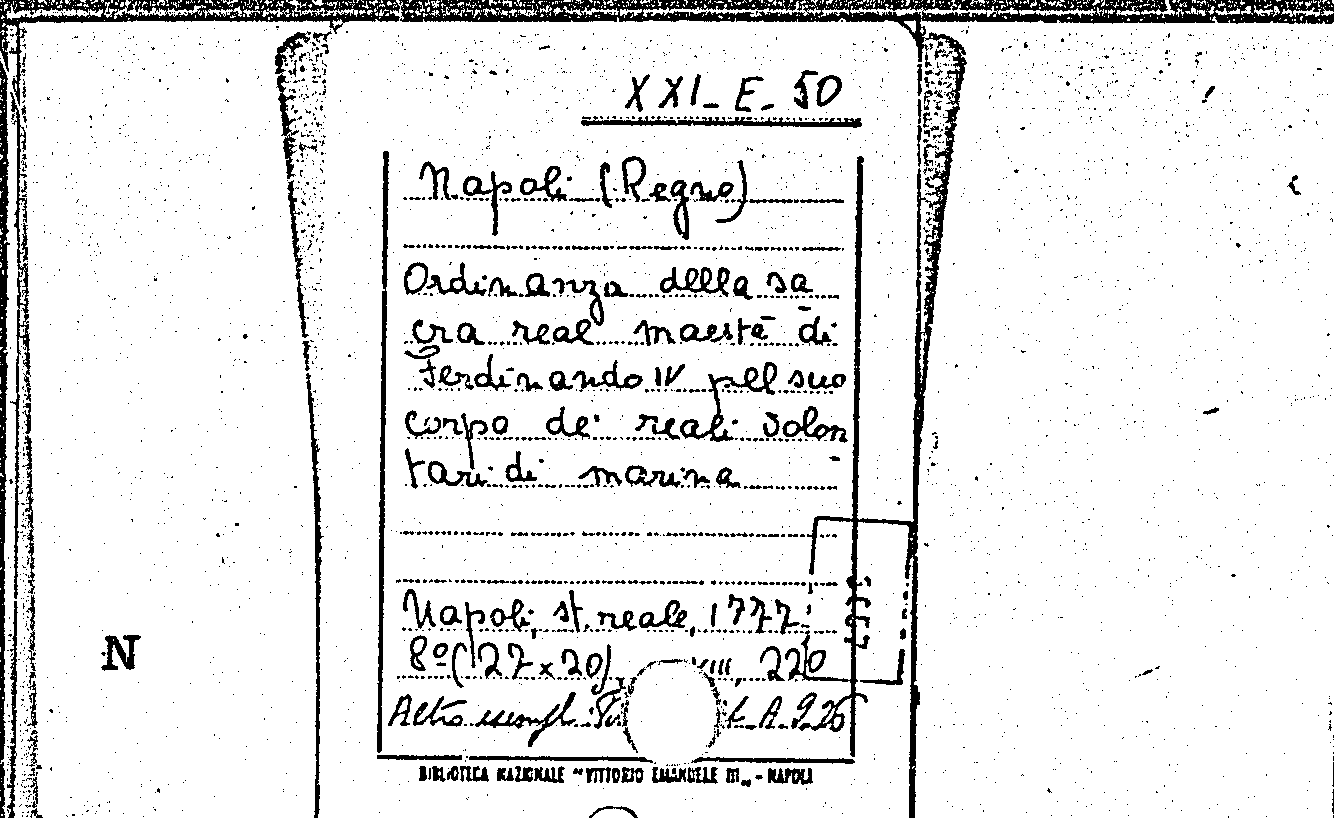 XXI-E-50
Napoli (Regno)
Ordinanza della sa
cra real maestà di
Ferdinando IV pell suo
corpo de' reali volon
tari di marina
Napoli, st. reale, 1777
8º (27 x 20), VIII, 220
Altro esempl. A. 9. 26
N
BIBLIOTECA NAZIONALE "VITTORIO EMANUELE III" - NAPOLI